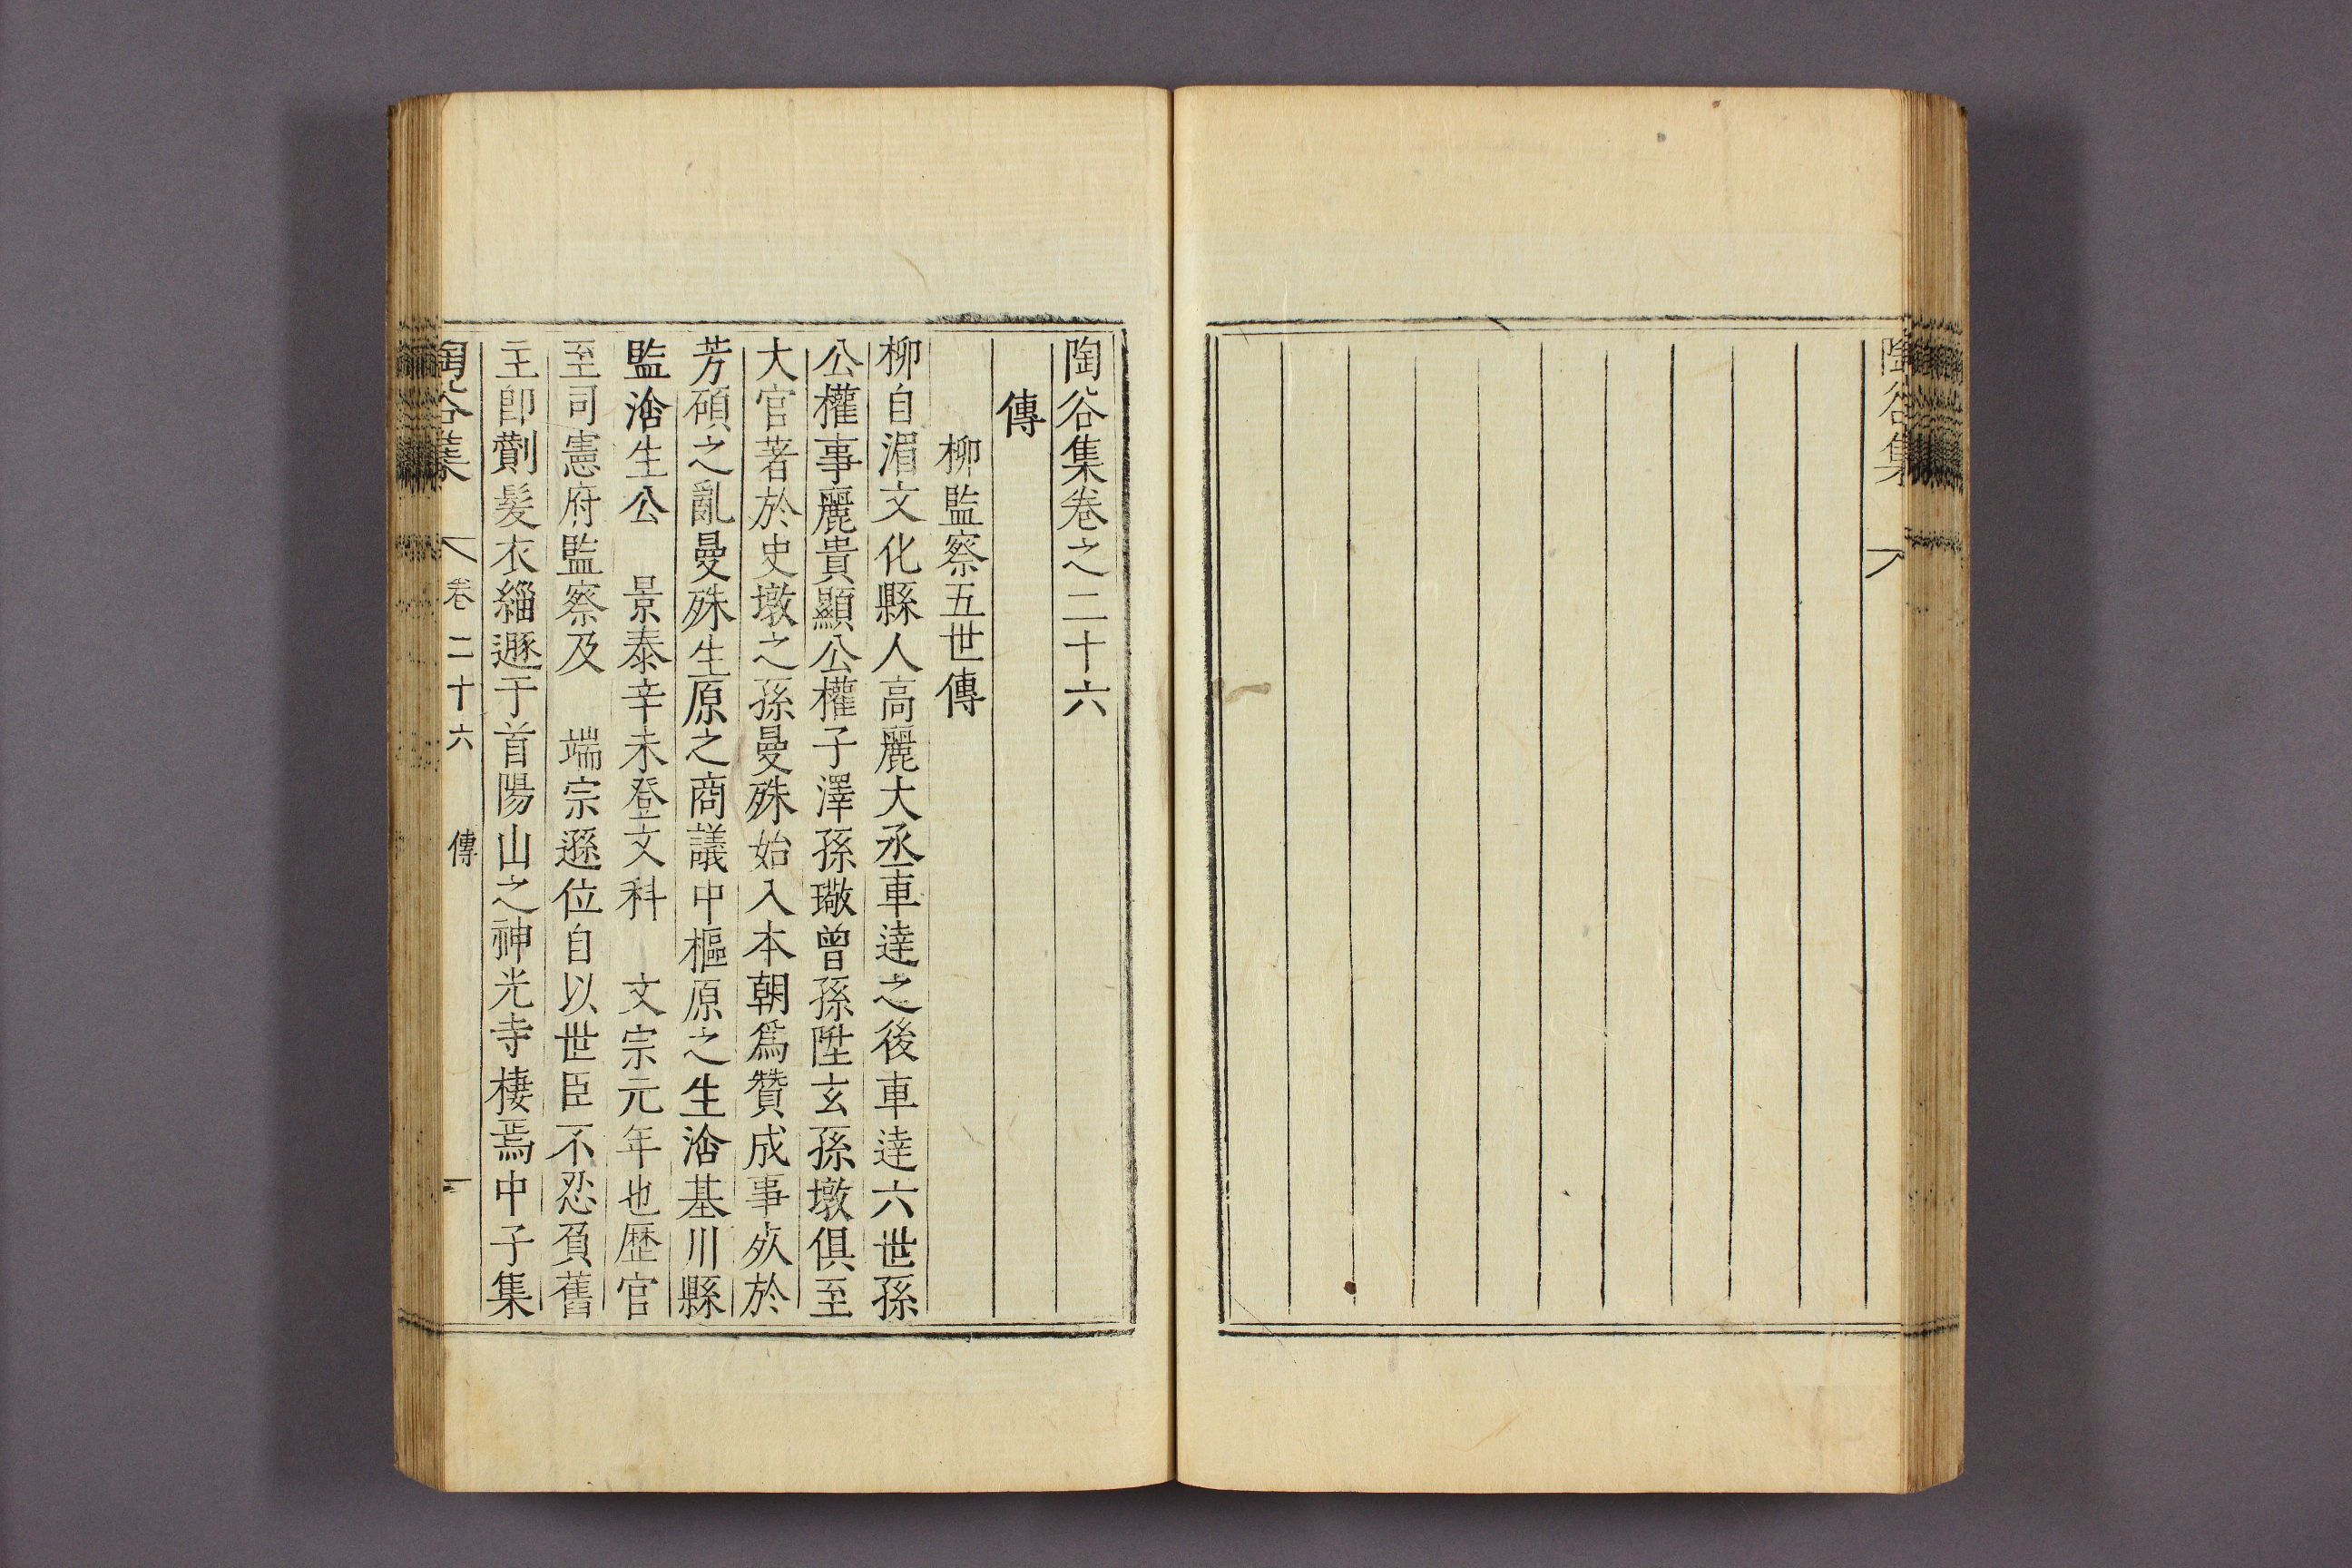 陶谷集
陶谷集卷之二十六
傳
柳監察五世傳
柳自湄文化縣人高麗大丞車達之後車達六世孫
公權事麗貴顯公權子澤孫璥曾孫陞玄孫墩俱至
大官著於史墩之孫曼殊始入本朝爲贊成事死於
芳碩之亂曼殊生原之商議中樞原之生渰基川縣
監渰生公 景泰辛未登文科 文宗元年也歷官
至司憲府監察及 端宗遜位自以世臣不忍負舊
主卽劗髮衣緇遯于首陽山之神光寺棲焉中子集
陶谷集 卷二十六 傳 一